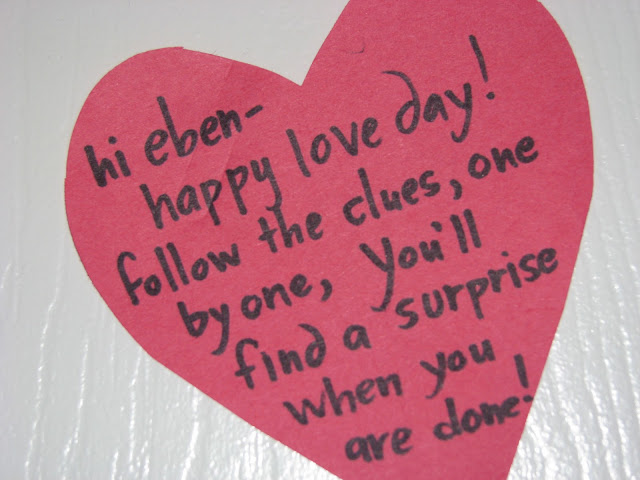 hi eben-
happy love day!
follow the clues, one
by one, You'll
find a surprise
when you
are done!